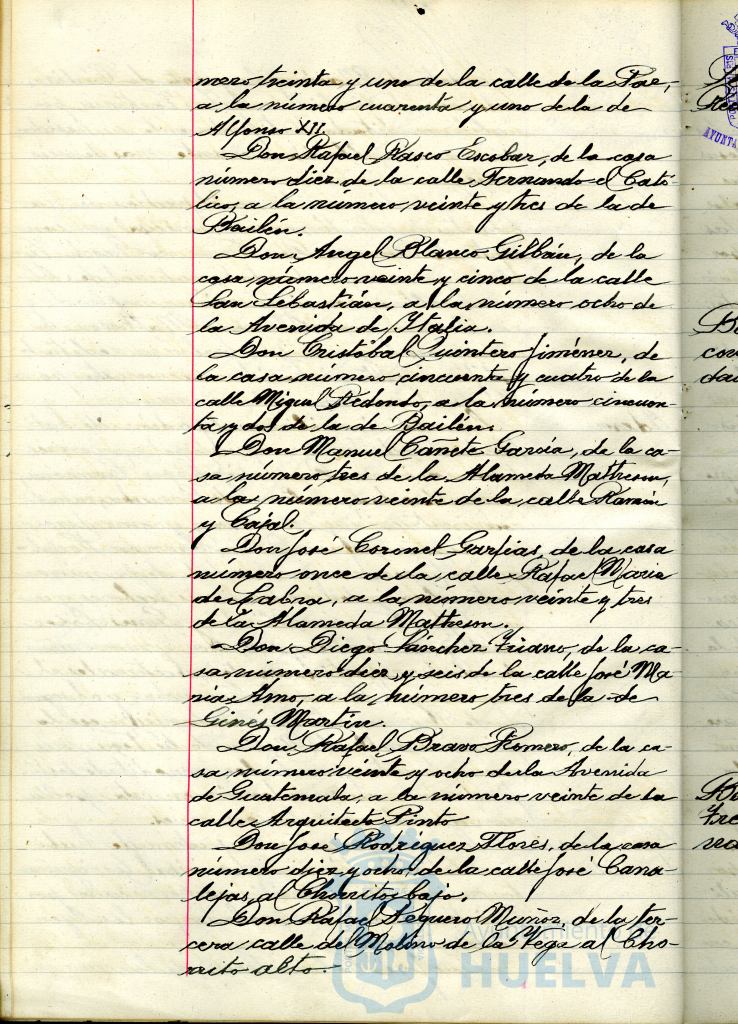 mero treinta y uno de la calle de la Paz,
a la número cuarenta y uno de la de
Alfonso XII.
Don Rafael Rasco Escobar, de la casa
número diez de la calle Fernando el Cató-
lico, a la número veinte y tres de la de
Bailén.
Don Angel Blanco Gilbáu, de la
casa número veinte y cinco de la calle
San Sebastián, a la número ocho de
la Avenida de Italia.
Don Cristóbal Quintero Jiménez, de
la casa número cincuenta y cuatro de la
calle Miguel Redondo, a la número cincuen-
ta y dos de la de Bailén.
Don Manuel Cañete García, de la ca-
sa número tres de la Alameda Mattheson,
a la número veinte de la calle Ramón
y Cajal.
Don José Coronel Garfias, de la casa
número once de la calle Rafael María
de Labra, a la número veinte y tres
de la Alameda Mattheson.
Don Diego Sánchez Triano, de la ca-
sa número diez y seis de la calle José Ma-
ria Amo, a la número tres de la de
Ginés Martín.
Don Rafael Bravo Romero, de la ca-
sa número veinte y ocho de la Avenida
de Guatemala, a la número veinte de la
calle Arquitecto Pinto
Don José Rodríguez Flores, de la casa
número diez y ocho de la calle José Cana-
lejas, al Chorrito bajo.
Don Rafael Seguero Muñoz, de la ter-
cera calle del Molino de la Vega al Cho-
rrito alto.
Ayuntamiento
HUELVA